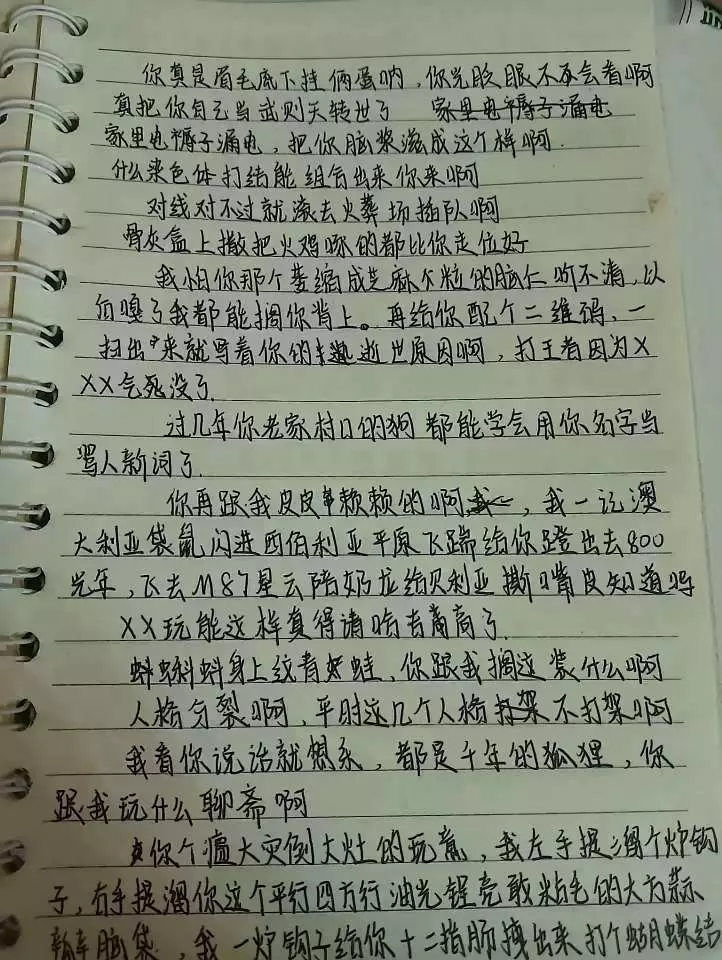 你真是眉毛底下挂俩蛋呐，你光眨眼不不会看啊
真把你自己当武则天转世了 家里电褥子漏电
家里电褥子漏电，把你脑浆滋成这个样啊．
什么染色体打结能组合出来你来啊
对线对不过就滚去火葬场插队啊
骨灰盒上撒把火鸡啄的都比你走位好
我怕你那个萎缩成芝麻尕粒的脑仁听不清，以
后嘎了我都能搁你背上。再给你配个二维码，一
扫出来就写着你的逝世原因啊，打王者因为X
XX气死没了．
过几年你老家村口的狗都能学会用你名字当
骂人新词了．
你再跟我皮皮赖赖的啊，我一记澳
大利亚袋鼠闪进西伯利亚平原飞踹给你蹬出去800
光年，飞去M87星云陪奶龙给贝利亚撕嘴皮知道吗
XX玩能这样真得请啥者高高了．
蝌蚪身上纹青蛙，你跟我搁这装什么啊
人格分裂啊，平时这几个人格打架不打架啊
我看你说话就想系，都是千年的狐狸，你
跟我玩什么聊斋啊
你个瘟大灾倒大灶的玩意，我左手提溜个炉钩
子，右手提溜你这个平行四方行油光锃亮敢粘毛的大方蒜
脑袋，我一炉钩子给你十二指肠拽出来打个蝴蝶结